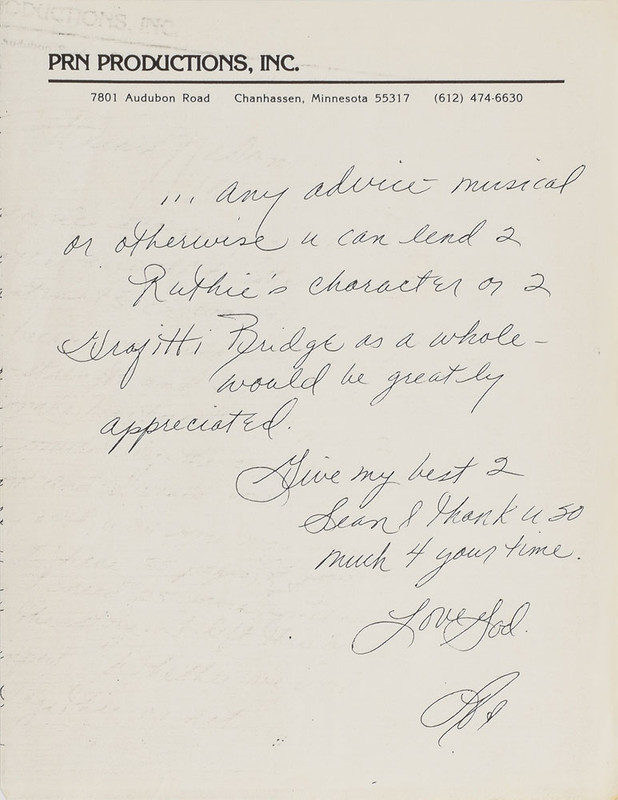 PRODUCTIONS, INC.
PRN PRODUCTIONS, INC.
7801 Audubon Road Chanhassen, Minnesota 55317 (612) 474-6630
... any advice - musical
or otherwise u can lend 2
Ruthie's character or 2
Graffitti Bridge as a whole -
would be greatly
appreciated.
Give my best 2
Sean & thank u so
much 4 your time.
Love God.